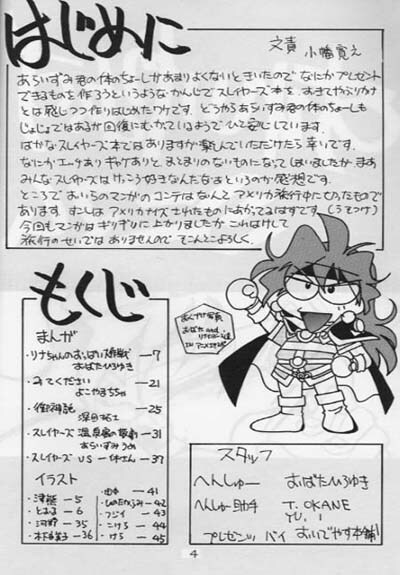 はじめに
文責 小幡寛之
あらいずみ君の体のちょーしがあまりよくないときいたので なにか プレゼント
できるものを作ろうというような かんじで スレイヤーズ本を
とは 思いつつ作りはじめたワケです。 どうやらあらいずみ君の体のちょーしも
じょじょではあるが回復にむかっているようで ひと安心しています。
ばかなスレイヤーズ本ではありますが 楽しんでいただけたら 幸いです。
なにかエッチあり ギャグありと、まとまりのないものになってしまいましたが まあ
みんなスレイヤーズはけっこう好きなんだなあというのが 感想です。
ところで あいらのマンガのコンテは なんと アメリカ旅行中にとったもので
あります。 すこしは アメリカナイズされたものにあがってるはずです。(うそつけ)
今回もマンガは ギリギリに 上がりましたが これはけして
旅行のせいでは ありませんので そこんとこよろしく。
もくじ
まんが
・リナちゃんのおっぱい大作戦 ー7
おばたひろゆき
・みてください ー21
よこやまちちゃ
・御神託 ー25
深田拓士
・スレイヤーズ 温泉 ー31
あらいずみるい
・スレイヤーズ VS 一休さん ー37
イラスト
・津熊 ー5
・ともよ ー6
・河野 ー35
ー36
・由本 ー41
ー42
・フジイ ー43
・こけろ ー44
・けろ ー45
おばた and
IN アメリカ
スタッフ
へんしゅー おばたひろゆき
へんしゅー助手 T. OKANE
YU. I
プレゼンツ バイ おいでやす本舗
4